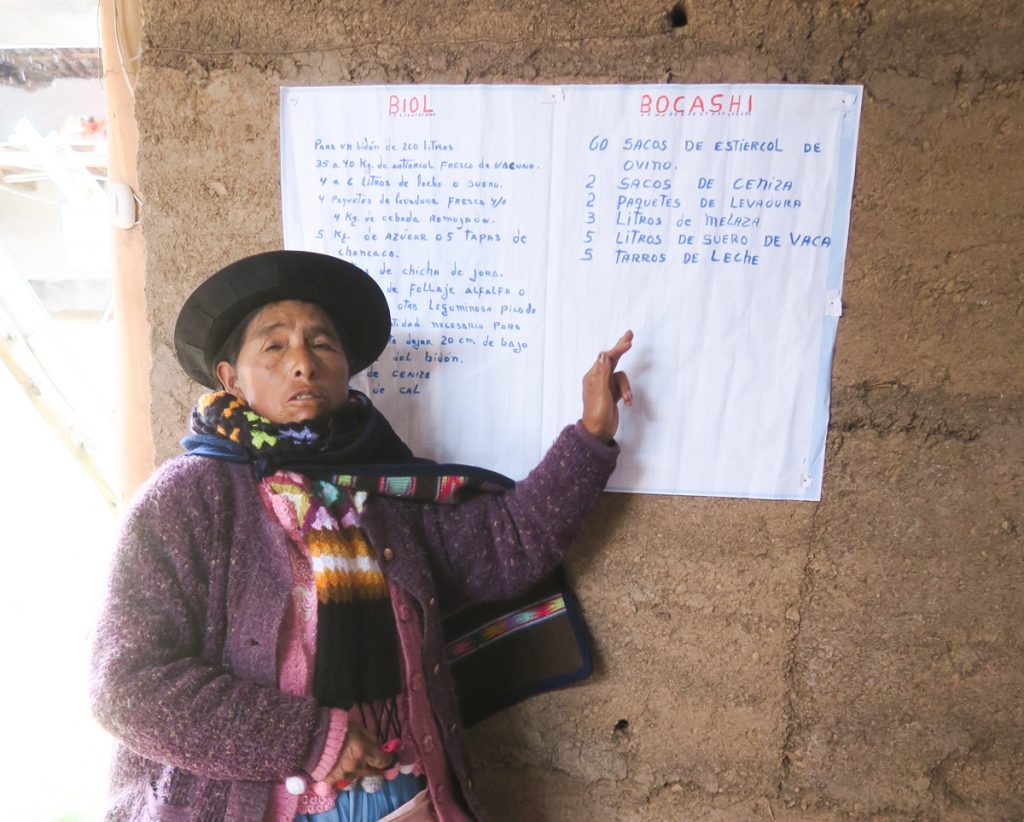 BIOL
PARA UN bidón de 200 LITROS
35 a 40 Kg. de estiercol FRESCO de VACUNO.
4 a 6 LITROS de leche o SUERO.
4 Paquetes de levadura FRESCA Y/O
4 Kg. de cebada REMOJADA.
5 Kg. de AZÚCAR o 5 TAPAS de
chancaca.
de chicha de jora.
de FOLLAJE ALFALFA o
otra Leguminosa picado
necesaria PARA
dejar 20 cm. de bajo
del bidón.
de CENIZA
de CAL
BOCASHI
60 SACOS DE ESTIERCOL DE
OVINO.
2 SACOS DE CENIZA
2 PAQUETES DE LEVADURA
3 LITROS de MELAZA
5 LITROS DE SUERO DE VACA
5 TARROS DE LECHE